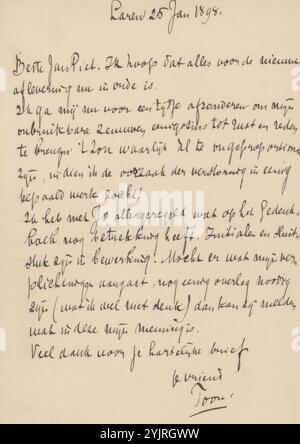 Laren 25 Jan 1898.
Beste Jan Piet. Ik hoop dat alles voor de nieuwe
aflevering nu in orde is.
Ik ga mij nu voor een tijdje afzonderen om mijn
onbruikbare zenuwen eenigszins tot rust en reden
te brengen 't Zou waarlijk al te ongeproportioneerd
zijn, indien ik de oorzaak der verstoring in eenig
bepaald werk zocht!
Ik heb met Jo alles geregeld wat op het Gedenk-
boek nog betrekking heeft. Initialen en sluit-
stuk zijn in bewerking! Mocht er wat mijn ver-
plichtingen aangaat, nog eenig overleg noodig
zijn (wat ik wel niet denk) dan kan zij melden
wat in deze mijn meening is.
Veel dank voor je hartelijke brief
je vriend
Toon.
alamy
Image ID: 2YJRGWW
www.alamy.com